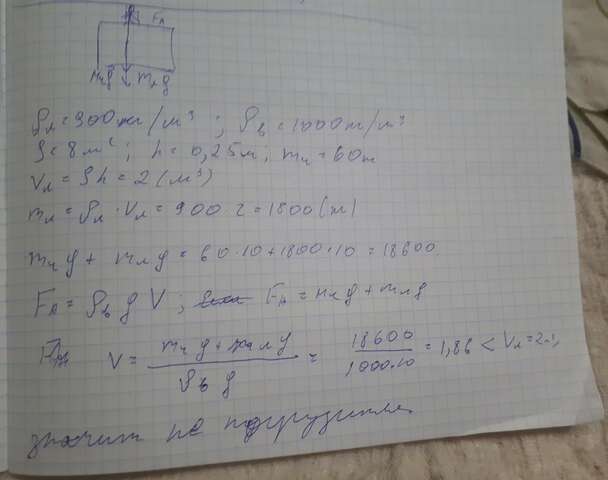 Fₐ
mчg mлg
ρл = 900 кг/м³ ; ρв = 1000 кг/м³
S = 8 м² ; h = 0,25 м ; mч = 60 кг
Vл = Sh = 2 (м³)
mл = ρл · Vл = 900 · 2 = 1800 (кг)
mчg + mлg = 60·10 + 1800·10 = 18600
Fₐ = ρв g V ; Fₐ = mчg + mлg
V = (mчg + mлg) / (ρв g) = 18600 / (1000·10) = 1,86 < Vл = 2м³
значит не погрузится